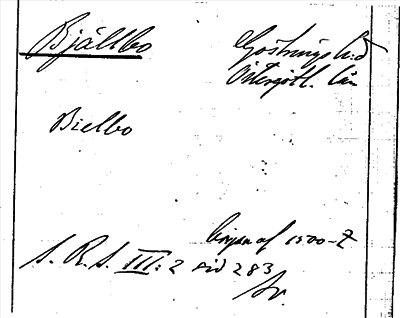 Bjälbo
Göstrings hd
Östergötl. län
Bielbo
början af 1500-t
S. R. S. III: 2 sid 283